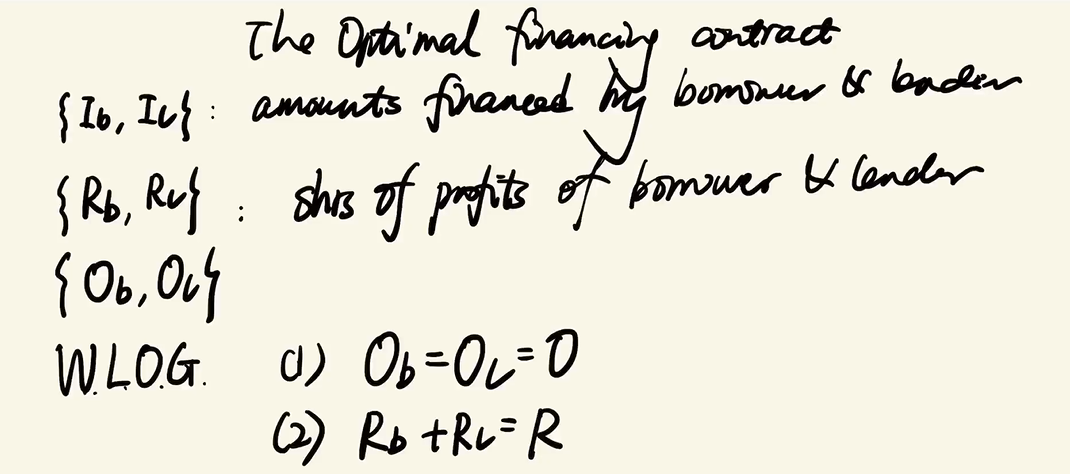 The Optimal financing contract
{Ib, IL} : amounts financed by borrower & lender
{Rb, RL} : shrs of profits of borrower & lender
{Ob, OL}
W.L.O.G. (1) Ob=OL=O
(2) Rb+RL=R